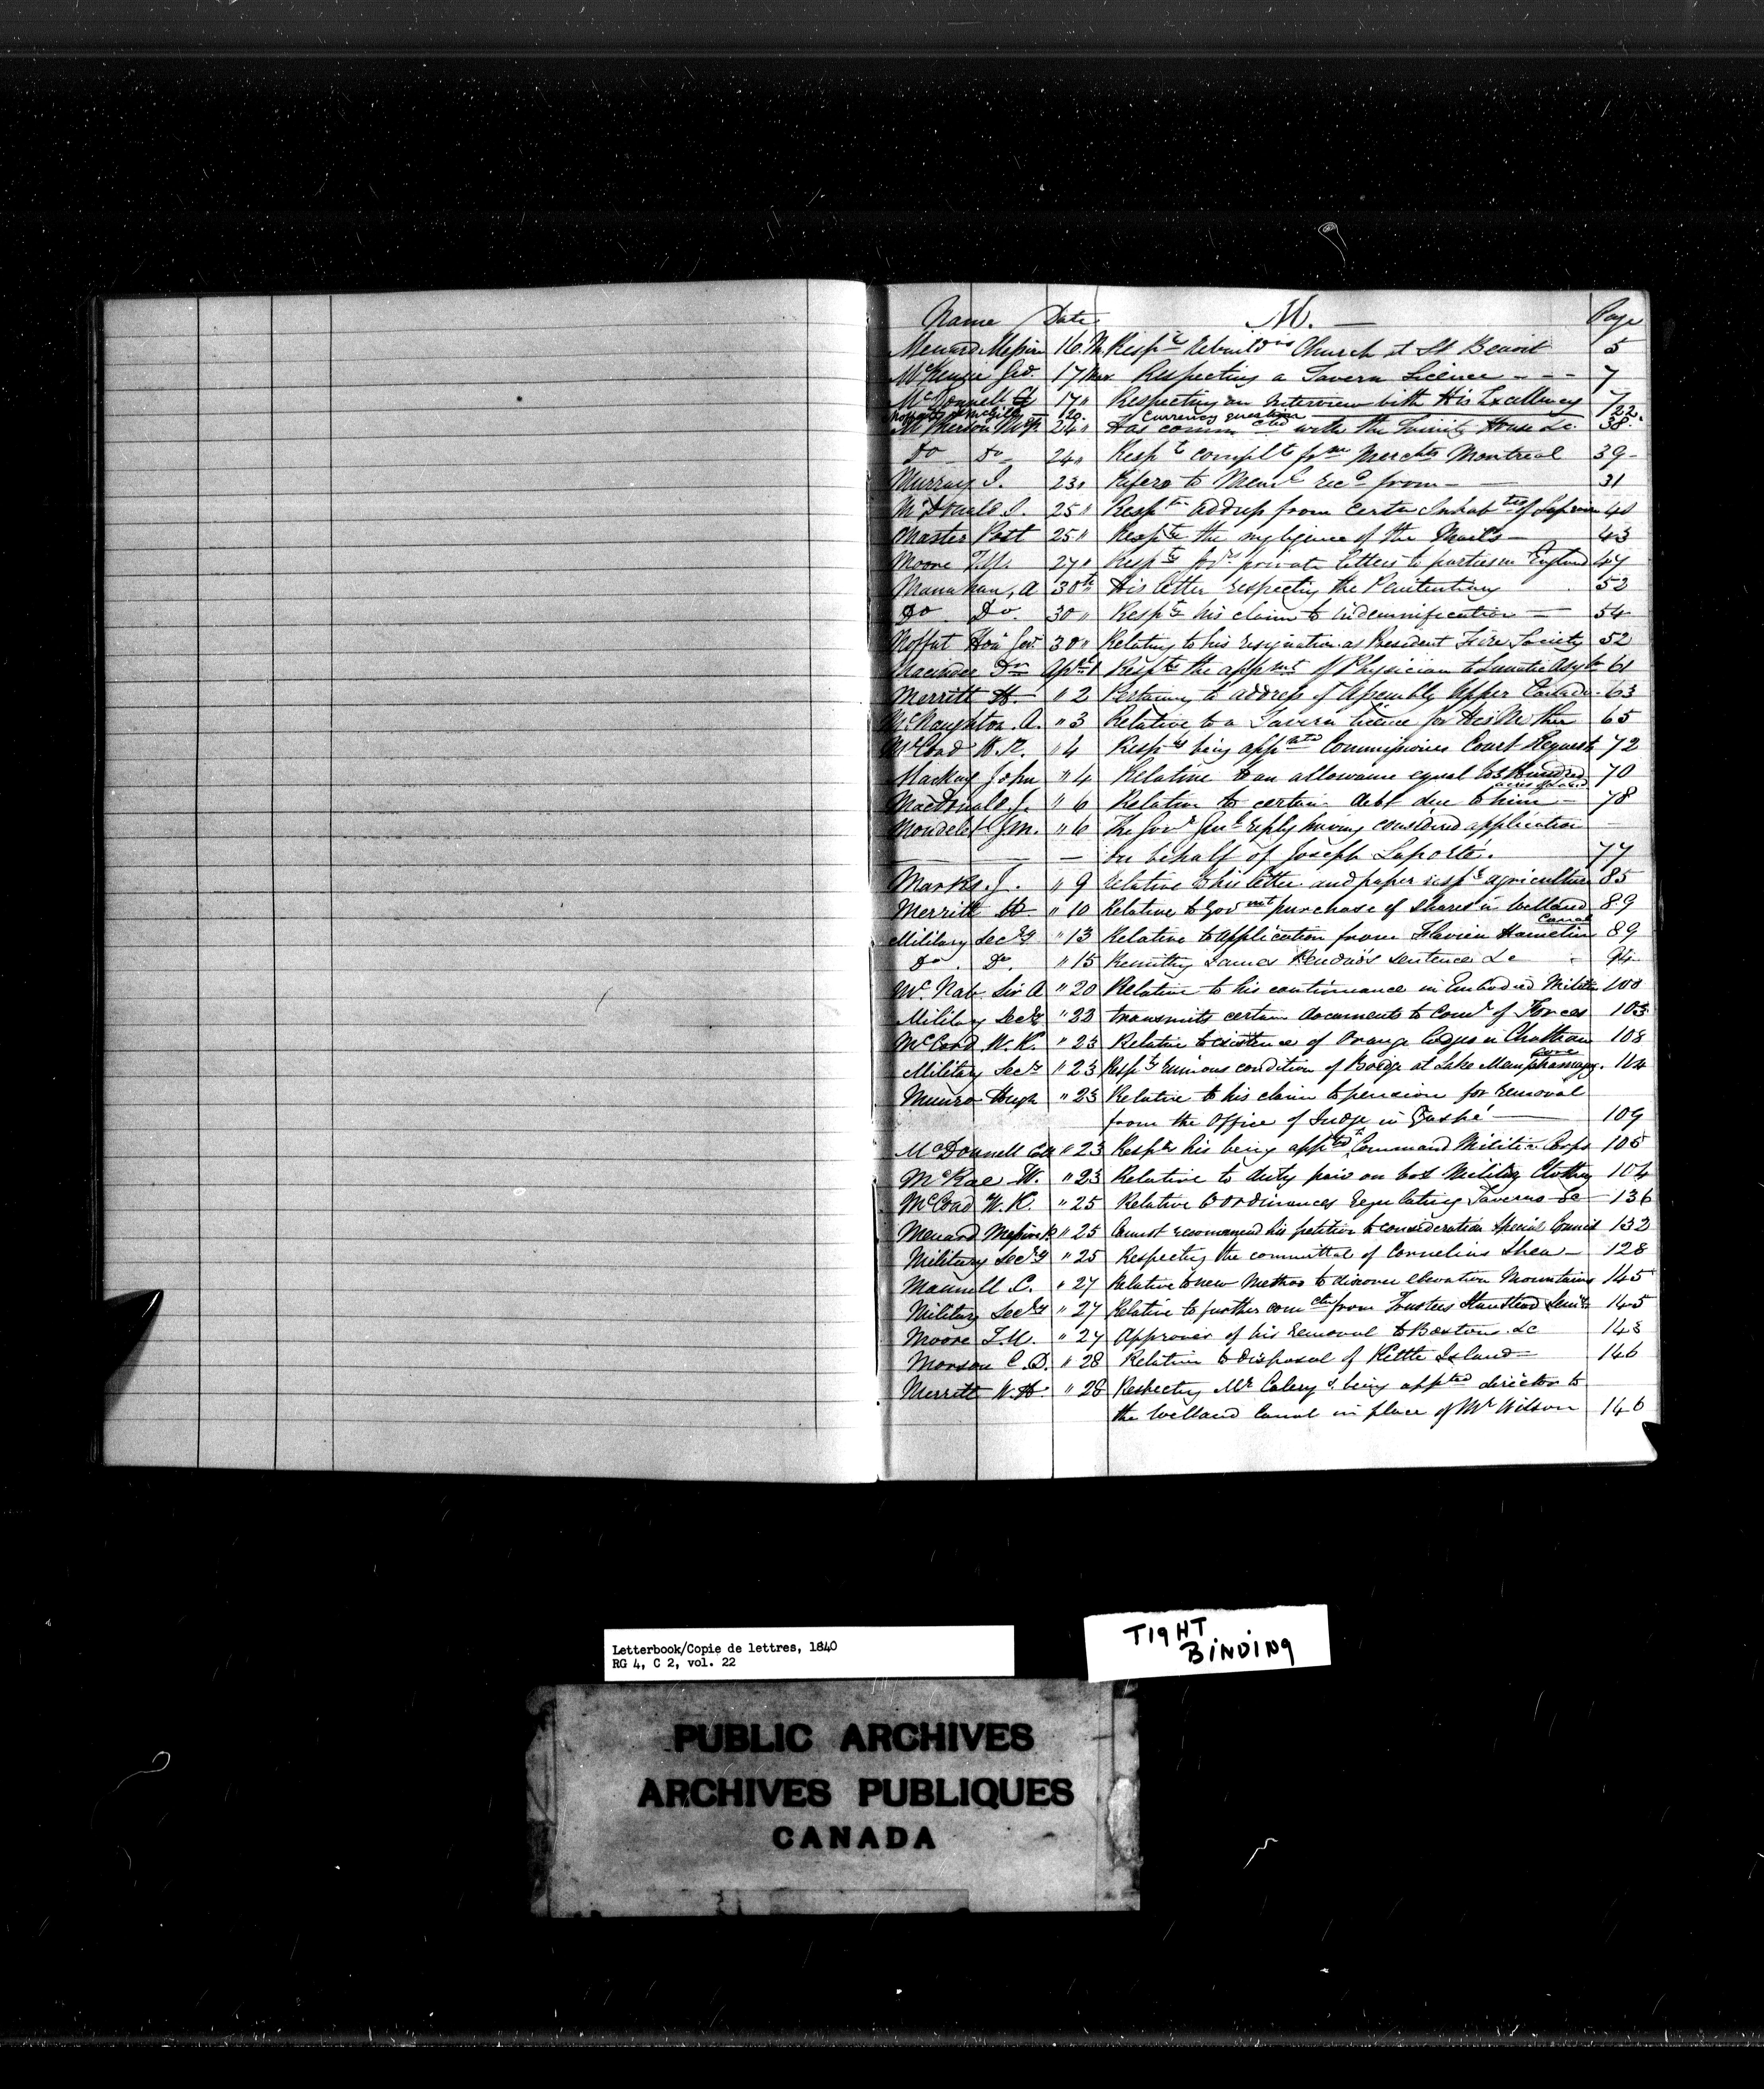 Name Date M. — Page
Menard Messire 16 M Respg rebuildg Church at St Benoit 5
McKenzie Geo. 17 Mar Respecting a Tavern Licence - - - 7
McDonnell 17 " Respecting an interview with His Excellency 7
Moffatt & McGill — 20 Currency question — 122
McPherson 24 " Has commcted with the Trinity House &c 38
Do Do 24 " Respg complt fm Merchts Montreal 39
Murray J. 23 " Refers to Meml recd from — 31
McDonald J. 25 " Respg address from certn Inhabts of 40
Master Post 25 " Respg the negligence of the Mails — 43
Moore T.M. 27 " Respg private letters to parties in England 47
Manahan, A 30th His letter respecting the Penitentiary 53
Do Do 30 " Respg his claim to indemnification — 54
Moffat Hon Geo. 30 " Relating to his resignation as President Fire Society 52
Dr April 1 Respg the appmt of Physician to Lunatic Asylm 61
Merritt H " 2 Pertaining to address of Assembly Upper Canada 63
McNaughton A. " 3 Relative to a Tavern licence for His Mother 65
McCord W.K. " 4 Respg being appnted Commissioner Court Requests 72
Mackay John " 4 Relative to an allowance equal to Hundred 70
acres of land
MacDonald J. " 6 Relative to certain debt due to him — 78
Mondelet Jm. " 6 The Govr Genl reply having considered application
— — on behalf of Joseph Laporte. 77
Marks J. " 9 relative to his letter and paper respg agriculture 85
Merritt H " 10 Relative to Govmnt purchase of shares in Welland 89
Canal
Military Secry " 13 Relative to application from Flavien Hamelin 89
Do . Do. " 15 Remitting James sentence &c 94
McNab Sir A " 20 Relative to his continuance in Embodied Militia 100
Military Secy " 23 transmits certain documents to Comr of Forces 103
McCord W.K. " 23 Relative to existence of Orange Lodges in Chatham 108
Military Secy " 23 Respg ruinous condition of Bridge at Lake Memphramagog. 104
Munro Hugh " 23 Relative to his claim to pension for removal
from the Office of Judge in Gaspé — 109
McDonnell Col " 23 Respg his being appted to Command Militia Corps 105
McRae W. " 23 Relative to duty paid on Military Clothing 104
McCord W.K. " 25 Relative to ordinances regulating Taverns &c 136
Menard Messire " 25 Cannot recommend his petition to consideration Special Council 133
Military Secry " 25 Respecting the committal of Cornelius Shea — 128
Maxwell C. " 27 Relative to new method to discover elevation Mountains 145
Military Secry " 27 Relative to further comctn from Trustees Stanstead 145
Moore T.M. " 27 Approves of his removal to Boston &c 143
Monson C.D. " 28 Relative to disposal of Kettle Island — 146
Merritt W.H " 28 Respecting Mr being appted director to
the Welland Canal in place of Mr Wilson 146
Letterbook/Copie de lettres, 1840
RG 4, C 2, vol. 22
TIGHT
BINDING
PUBLIC ARCHIVES
ARCHIVES PUBLIQUES
CANADA